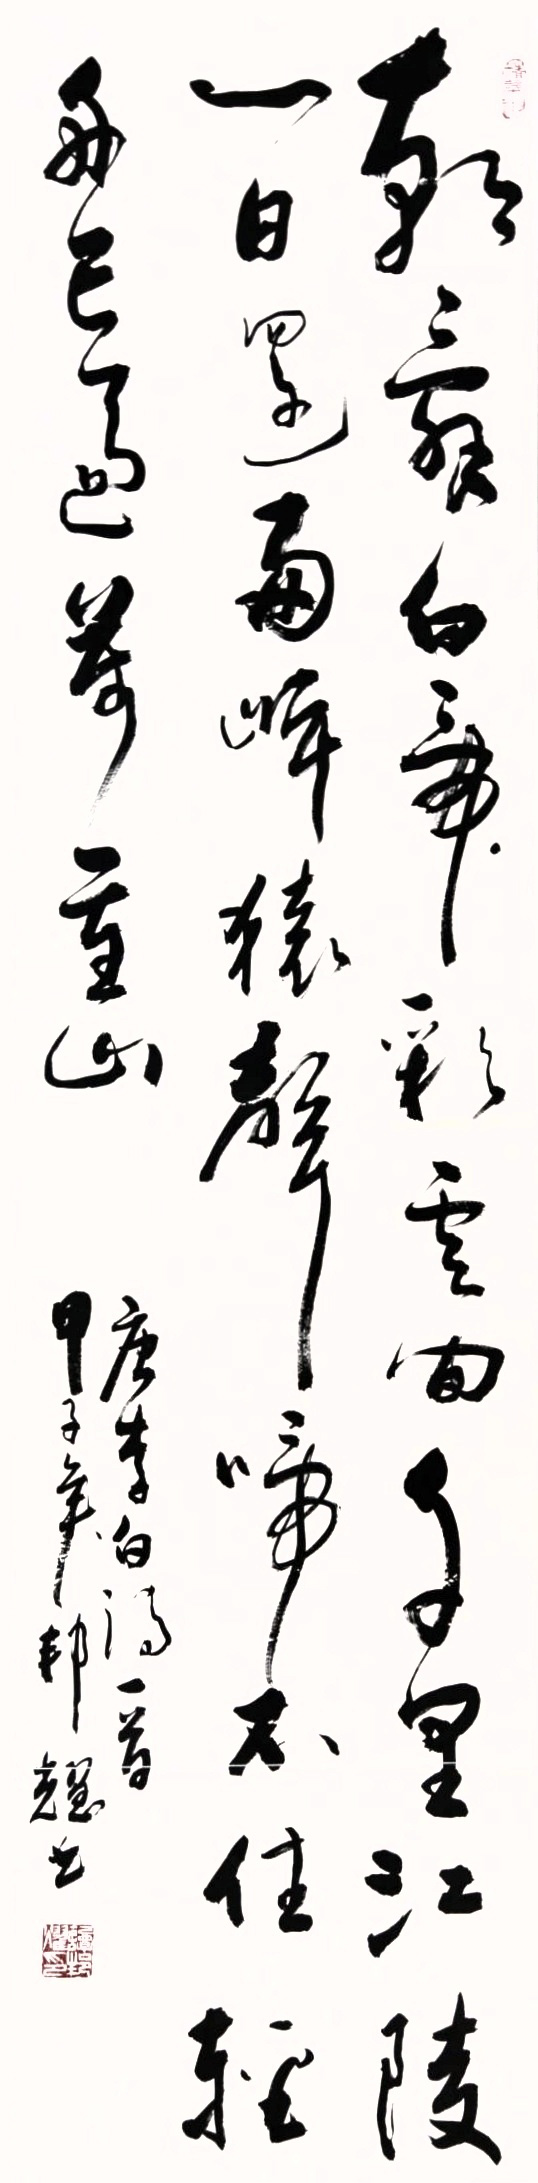 朝辭白帝彩雲間千里江陵
一日還兩岸猿聲啼不住輕
舟已過萬重山
唐李白詩一首
甲子年邦耀書